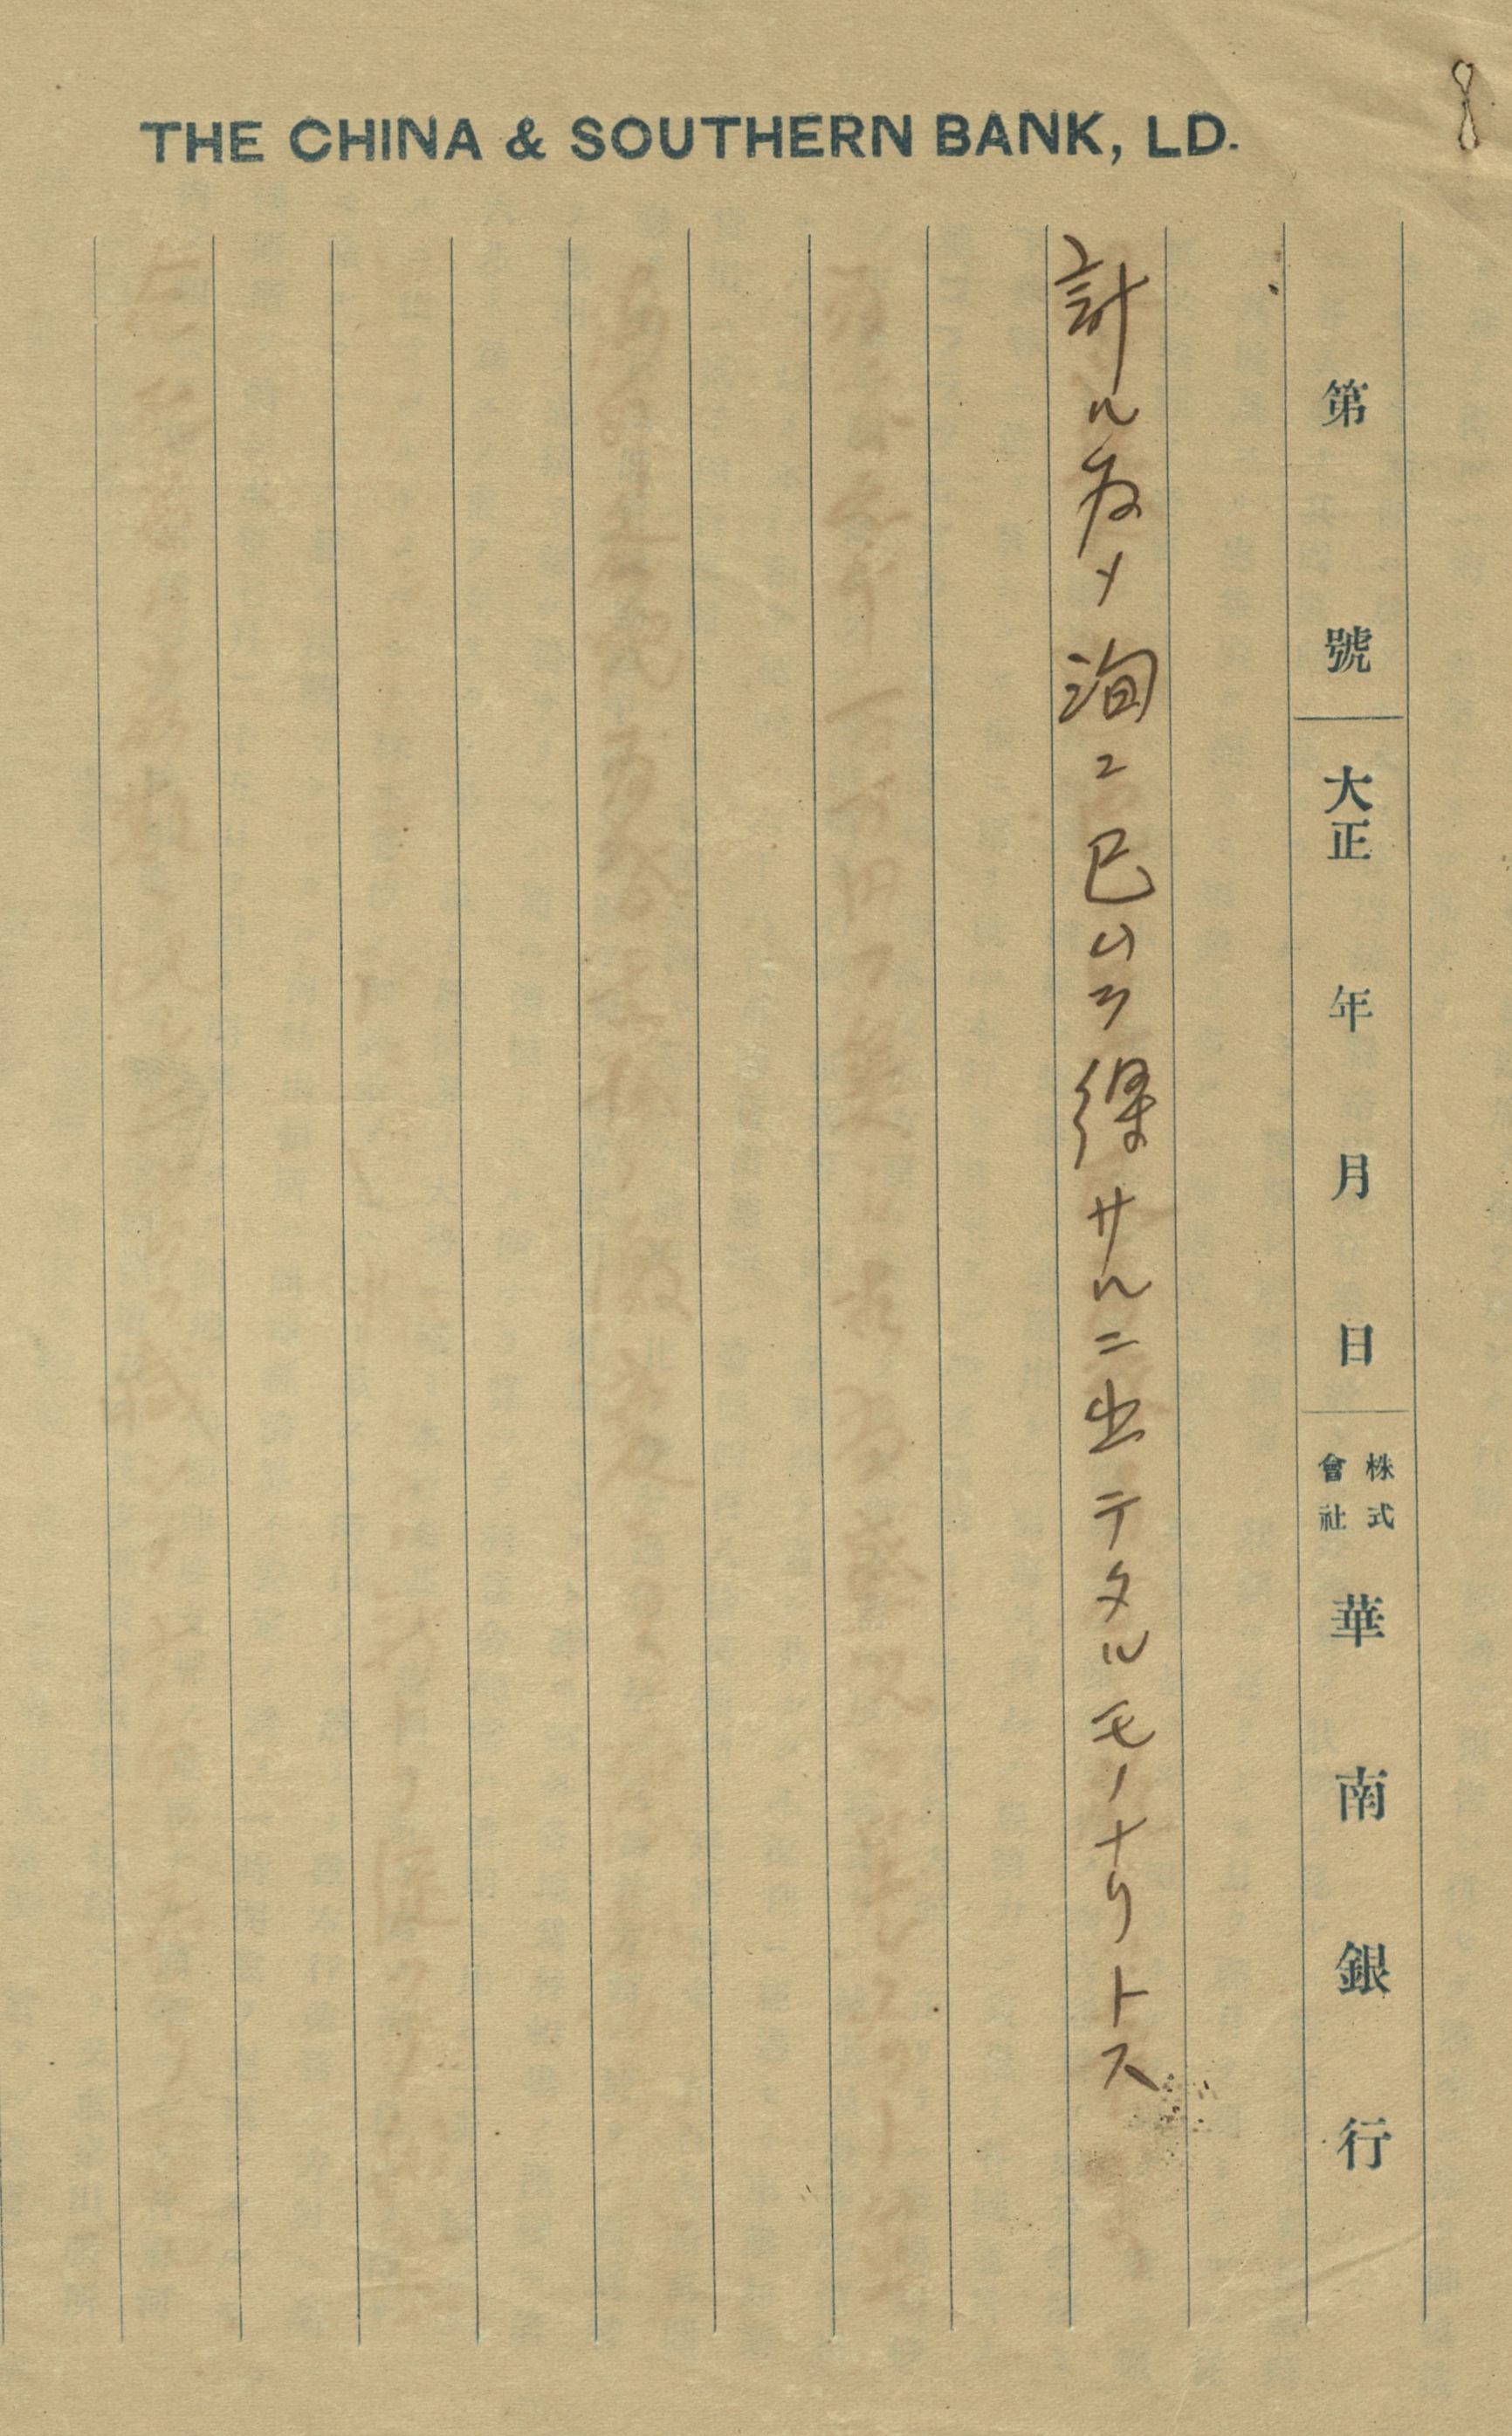 THE CHINA & SOUTHERN BANK, LD.
第 號 大正 年 月 日 株式會社 華南銀行
計ル為メ洵ニ已ムヲ得サルニ出テタルモノナリトス